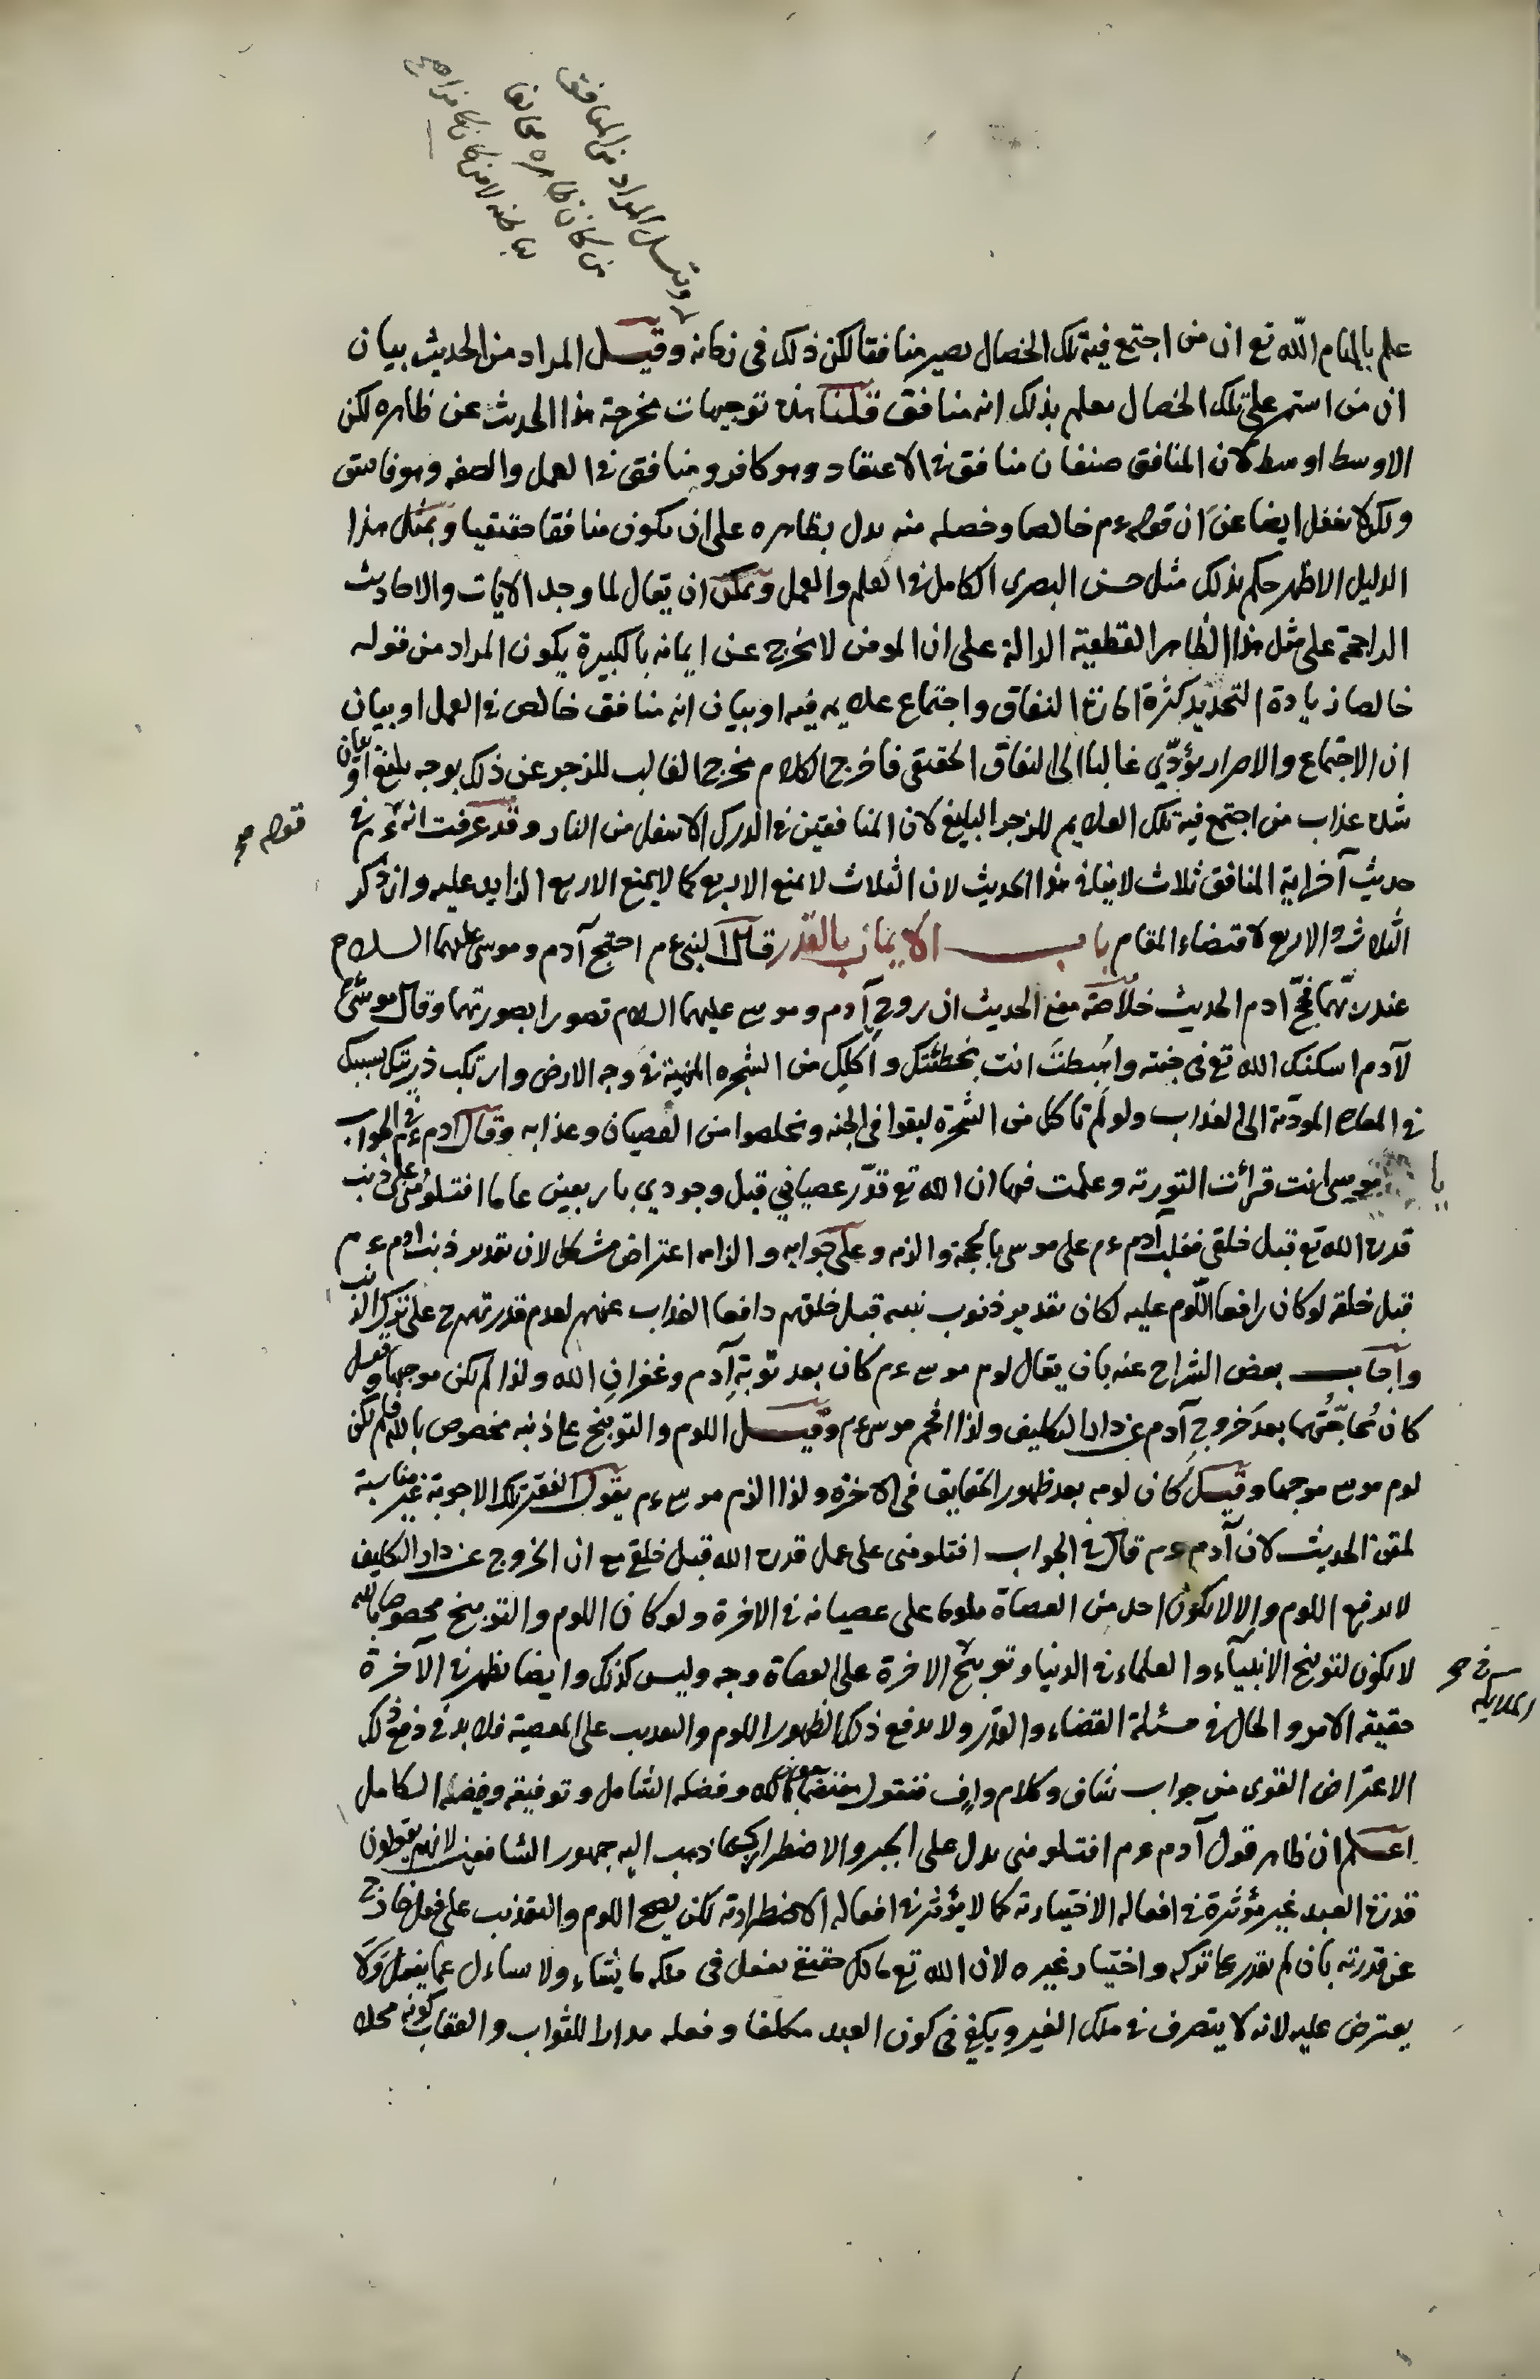 وقيل المراد من المنافق
من كان ظاهره مخالفا
لباطنه لا من كان كافرا
علم بالهام الله تع ان من اجتمع فيه تلك الخصال يصير منافقا لكن ذلك في زمانه وقيل المراد من الحديث بيان
ان من استمر على تلك الخصال يعلم بذلك انه منافق قلنا هذه توجيهات مخرجة هذا الحديث عن ظاهره لكن
الاوسط اوسط لان المنافق صنفان منافق في الاعتقاد وهو كافر ومنافق في العمل والصفه وهو فاسق
ولكن لا تغفل ايضا عن ان قوله عم خالصا وخصله منه يدل بظاهره على ان يكون منافقا حقيقيا وبمثل هذا
الدليل الاظهر حكم بذلك مثل حسن البصرى الكامل في العلم والعمل ويمكن ان يقال لما وجد الايات والاحاديث
الراجحة على مثل هذا الظاهر القطعية الدالة على ان المومن لا يخرج عن ايمانه بالكبيرة يكون المراد من قوله
خالصا زيادة التحديد كثرة النفاق واجتماع علايمه فيه او بيان انه منافق خالص في العمل او بيان
ان الاجتماع والاصرار يؤدّي غالبا الى النفاق الحقيقى فاخرج الكلام مخرج الغالب للزجر عن ذلك بوجه بليغ او بيان
شدة عذاب من اجتمع فيه تلك العلايم للزجر البليغ لان المنافقين في الدرك الاسفل من النار وقد عرفت انه عم في
قوله صح
حديث آخر اية المنافق ثلاث لا ينافي هذا الحديث لان الثلاث لا يمنع الاربع كما لا يمنع الاربع الزايد عليه وان ذكر
الثلاث والاربع لاقتضاء المقام باب الايمان بالقدر قال النبى عم احتج آدم وموسى عليهما السلام
عند ربّهما فحجّ ادم الحديث خلاصة معنى الحديث ان روح آدم وموسى عليهما السلام تصورا بصورتهما وقال موسى عم
لآدم اسكنك الله تع في جنته واهبطت انت بخطئتك واكلك من الشجره المنهية في وجه الارض وارتكب ذريتك بسببك
في المعاصى المودّية الى العذاب ولو لم تاكل من الشجرة لبقوا في الجنه وتخلصوا من العصيان وعذابه وقال ادم عم في الجواب
يا موسى انت قرأت التورية وعلمت فيها ان الله تع قدّر عصياني قبل وجودي باربعين عاما افتلومني على ذنب
قدره الله تع قبل خلقى فغلب آدم عم على موسى بالحجة والزمه وعلى جوابه والزامه اعتراض مشكل لان تقدير ذنب ادم عم
قبل خلقه لو كان رافعا اللّوم عليه لكان تقدير ذنوب بنيه قبل خلقهم دافعا العذاب عنهم لعدم قدرتهم ح على ترك الذنب
واجاب بعض الشراح عنه بان يقال لوم موسى عم كان بعد توبة آدم وغفران الله ولذا لم يكن موجها وقيل
كان مُحاجّتهما بعد خروج آدم عن دار التكليف ولذا افحم موسى عم وقيل اللوم والتوبيخ على ذنبه مخصوص بالله فلم يكن
لوم موسى موجها وقيل كان لومه بعد ظهور الحقايق في الاخره ولذا الزم موسى عم يقول الفقير تلك الاجوبة غير مناسبة
لمتن الحديث لان آدم عم قال في الجواب افتلومنى على عمل قدره الله قبل خلقى مع ان الخروج عن دار التكليف
لا يدفع اللوم والا لا يكون احد من العصاة ملوما على عصيانه في الاخرة ولو كان اللوم والتوبيخ مخصوصا بالله
لا يكون لتوبيخ الانبياء والعلماء في الدنيا وتوبيخ الاخرة على العصاة وجه وليس كذلك وايضا يظهر في الآخرة
الملايكة في صح
حقيقة الامر والحال في مسئلة القضاء والقدر ولا يدفع ذلك الظهور اللوم والتعذيب على المعصية فلا بد في دفع ذلك
الاعتراض القوى من جواب شاف وكلام وافٍ فنقول بعون الله وفضله الشامل وتوفيقه وفيضه الكامل
اعلم ان ظاهر قول آدم عم افتلومنى يدل على الجبر والاضطرار كما ذهب اليه جمهور الشافعين لانهم يقولون
قدرة العبد غير مؤثرة في افعاله الاختيارية كما لا يؤثر في افعاله الاضطرارية لكن يصح اللوم والتعذيب على فعل خارج
عن قدرته بان لم يقدر على تركه واختيار غيره لان الله تع مالك حقيقى يفعل في ملكه ما يشاء ولا يساءل عما يفعل ولا
يعترض عليه لانه لا يتصرف في ملك الغير ويكفي في كون العبد مكلفا وفعله مدارا للثواب والعقاب كونه محلا